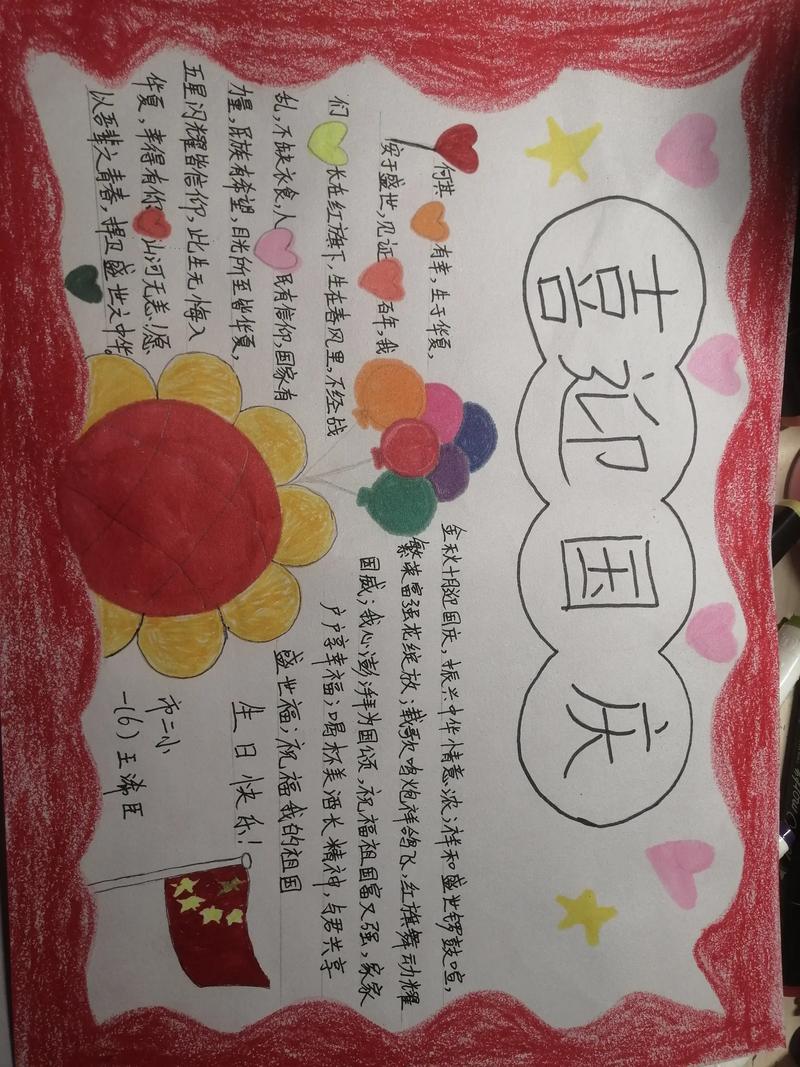 喜迎国庆
何其有幸，生于华夏，
安于盛世，见证百年，我
们长在红旗下，生在春风里，不经战
乱，不缺衣食，人民有信仰，国家有
力量，民族有希望，目光所至皆华夏，
五星闪耀皆信仰，此生无悔入
华夏，幸得有你山河无恙！愿
以吾辈之青春，捍卫盛世之中华。
金秋十月迎国庆，振兴中华情意浓；祥和盛世锣鼓喧，
繁荣富强花绽放；载歌鸣炮祥鸽飞，红旗舞动耀
国威；我心澎湃为国颂，祝福祖国富又强，家家
户户享幸福；喝杯美酒长精神，与君共享
盛世福；祝福我的祖国
生日快乐！
市二小
一(6)